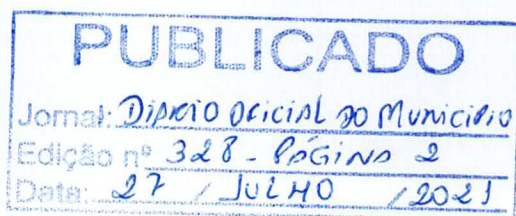 PUBLICADO
Jornal: DIÁRIO OFICIAL DO MUNICÍPIO
Edição nº 328 - PÁGINA 2
Data: 27 / JULHO / 2021